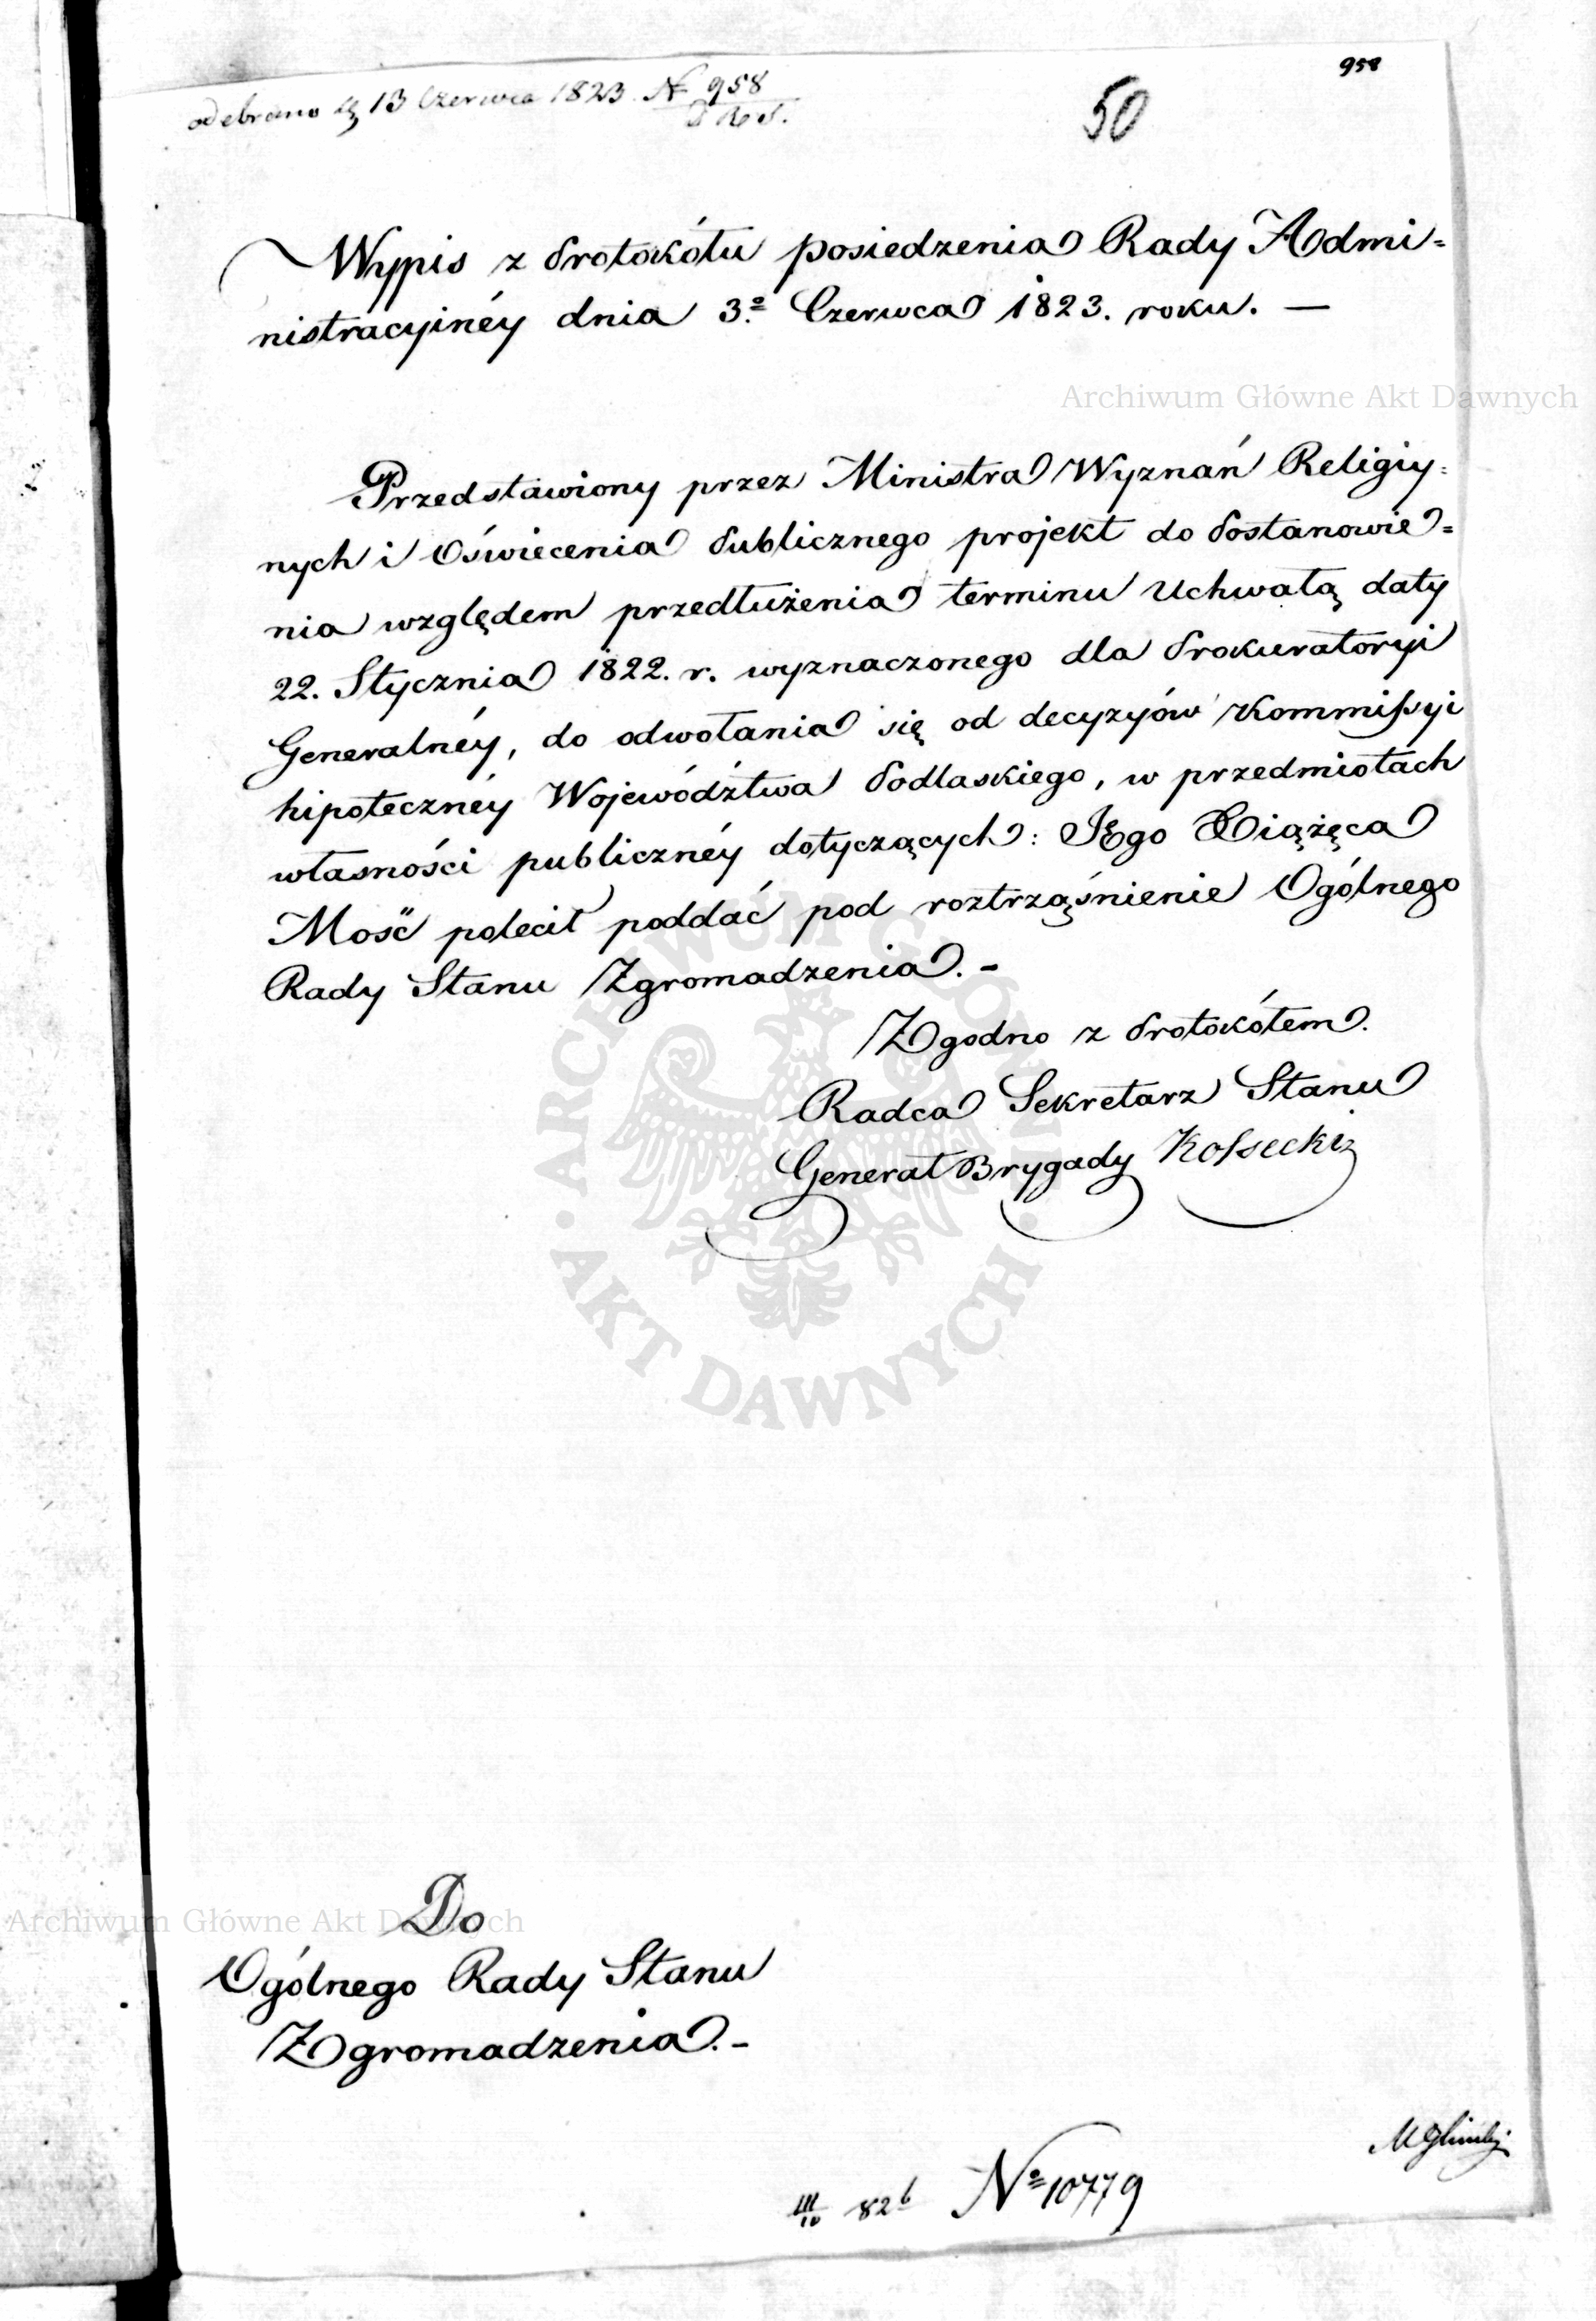 958
odebrano d. 13 Czerwca 1823 N 958
R S.
50
Wypis z Protokółu posiedzenia Rady Admi=
nistracyinéy dnia 3º Czerwca 1823. roku. —
Archiwum Główne Akt Dawnych
Przedstawiony przez Ministra Wyznań Religiy=
nych i Oświecenia Publicznego projekt do Postanowie=
nia względem przedłużenia terminu Uchwałą daty
22. Stycznia 1822. r. wyznaczonego dla Prokuratoryi
Generalnéy, do odwołania się od decyzyów Kommissyi
hipotecznéy Województwa Podlaskiego, w przedmiotach
własności publicznéy dotyczących: JEgo Xiążęca
Mość polecił poddać pod roztrząśnienie Ogólnego
Rady Stanu Zgromadzenia. -
Zgodno z Protokółem.
Radca Sekretarz Stanu
Generał Brygady Kossecki
ARCHIWUM GŁÓWNE · AKT DAWNYCH ·
Do
Archiwum Główne Akt Dawnych
Ogólnego Rady Stanu
Zgromadzenia. -
III/10 82b Nº 10779